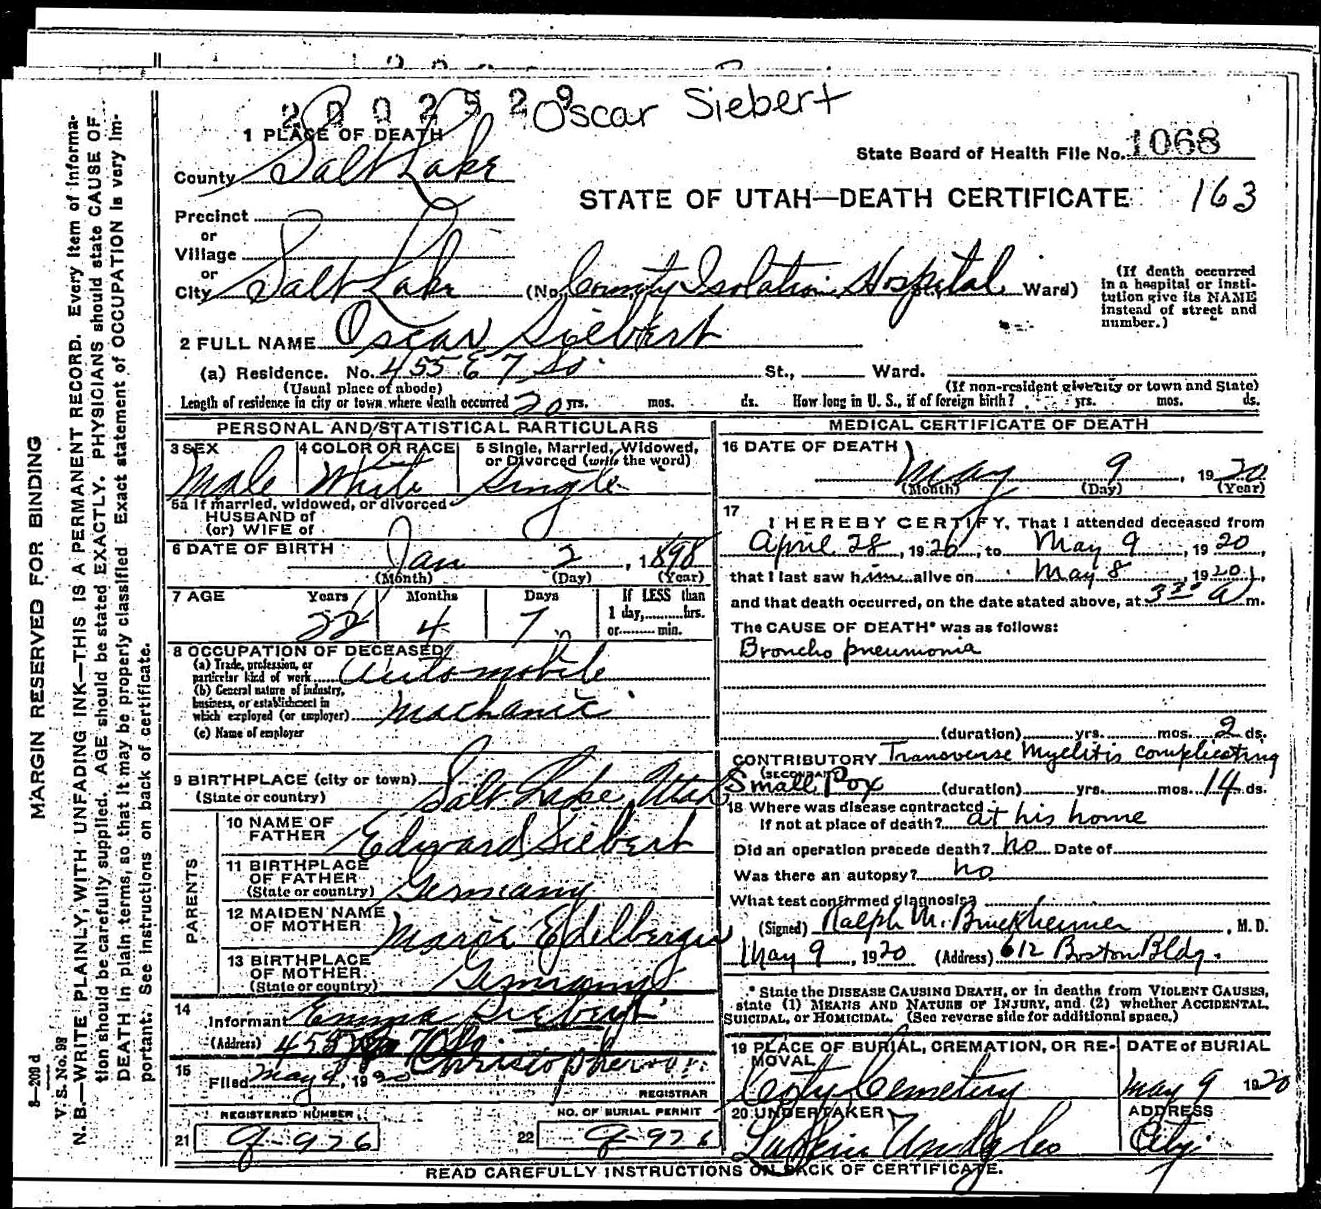 2002529 Oscar Siebert
1 PLACE OF DEATH
State Board of Health File No. 1068
County Salt Lake
STATE OF UTAH—DEATH CERTIFICATE 163
Precinct
or
Village
or
City Salt Lake (No. County Isolation Hospital Ward)
(If death occurred in a hospital or institution give its NAME instead of street and number.)
2 FULL NAME Oscar Siebert
(a) Residence. No. 455 E 7 So St., Ward.
(Usual place of abode) (If non-resident give city or town and State)
Length of residence in city or town where death occurred 20 yrs. mos. ds. How long in U. S., if of foreign birth? yrs. mos. ds.
PERSONAL AND STATISTICAL PARTICULARS
3 SEX Male
4 COLOR OR RACE White
5 Single, Married, Widowed, or Divorced (write the word) Single
5a If married, widowed, or divorced
HUSBAND of
(or) WIFE of
6 DATE OF BIRTH Jan 2, 1898
(Month) (Day) (Year)
7 AGE Years 22 Months 4 Days 7 If LESS than 1 day, hrs. or min.
8 OCCUPATION OF DECEASED
(a) Trade, profession, or particular kind of work Automobile
(b) General nature of industry, business, or establishment in which employed (or employer) Machanic
(c) Name of employer
9 BIRTHPLACE (city or town) Salt Lake Utah
(State or country)
PARENTS
10 NAME OF FATHER Edward Siebert
11 BIRTHPLACE OF FATHER Germany
(State or country)
12 MAIDEN NAME OF MOTHER Marie
13 BIRTHPLACE OF MOTHER Germany
(State or country)
14 Informant Emma Siebert
(Address) 455
15 Filed May 9, 1920
REGISTRAR
REGISTERED NUMBER
21 9-976
NO. OF BURIAL PERMIT
22 9-976
MEDICAL CERTIFICATE OF DEATH
16 DATE OF DEATH May 9, 1920
(Month) (Day) (Year)
17 I HEREBY CERTIFY, That I attended deceased from
April 28, 1920, to May 9, 1920,
that I last saw him alive on May 8, 1920,
and that death occurred, on the date stated above, at 3 30 a m.
The CAUSE OF DEATH* was as follows:
Broncho pneumonia
(duration) yrs. mos. 2 ds.
CONTRIBUTORY Transverse Myelitis complicating
(SECONDARY)
Small Pox (duration) yrs. mos. 14 ds.
18 Where was disease contracted
If not at place of death? at his home
Did an operation precede death? no Date of
Was there an autopsy? no
What test confirmed diagnosis?
(Signed) Ralph M. Bruckheimer, M. D.
May 9, 1920 (Address) 612 Boston Bldg.
* State the DISEASE CAUSING DEATH, or in deaths from VIOLENT CAUSES,
state (1) MEANS AND NATURE OF INJURY, and (2) whether ACCIDENTAL,
SUICIDAL, or HOMICIDAL. (See reverse side for additional space.)
19 PLACE OF BURIAL, CREMATION, OR REMOVAL City Cemetery
DATE of BURIAL May 9 1920
20 UNDERTAKER
ADDRESS City
READ CAREFULLY INSTRUCTIONS ON BACK OF CERTIFICATE.
MARGIN RESERVED FOR BINDING
8—209 d
V. S. No. 98
N. B.—WRITE PLAINLY, WITH UNFADING INK—THIS IS A PERMANENT RECORD. Every item of information should be carefully supplied. AGE should be stated EXACTLY. PHYSICIANS should state CAUSE OF DEATH in plain terms, so that it may be properly classified. Exact statement of OCCUPATION is very important. See instructions on back of certificate.